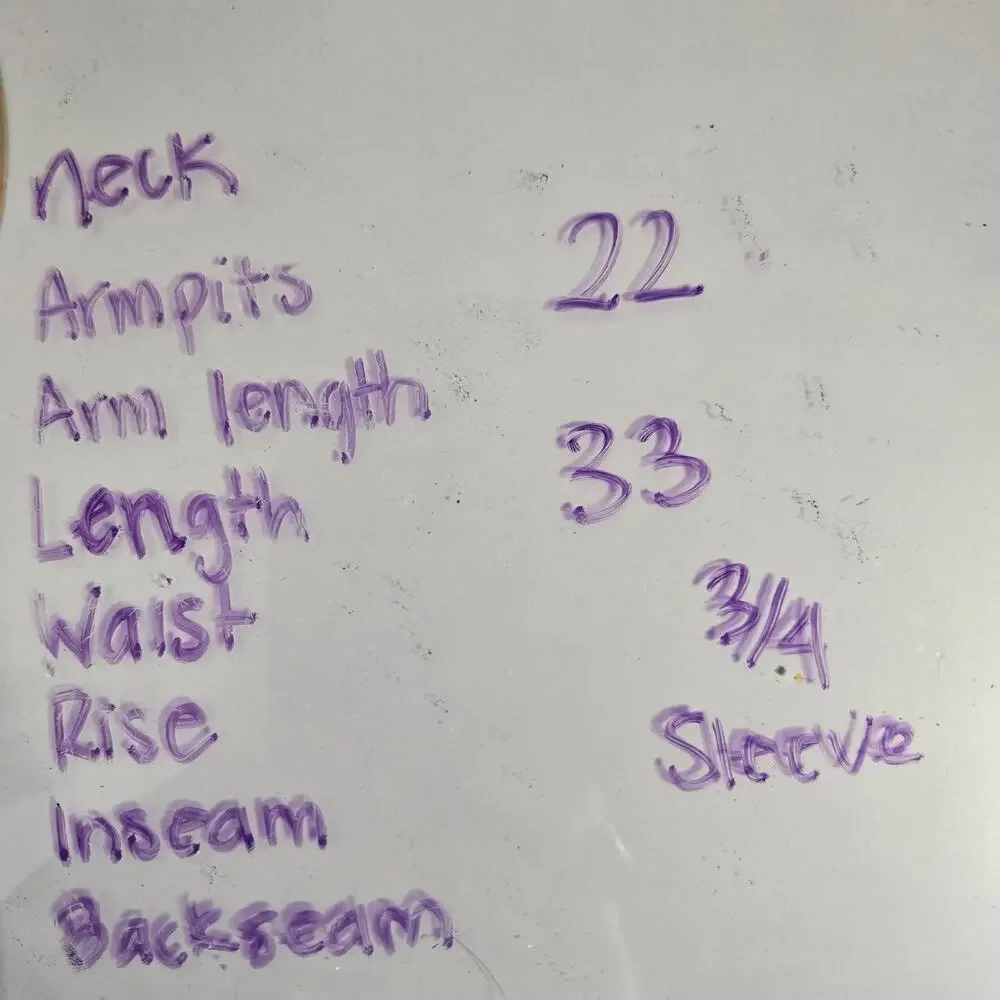 neck
Armpits 22
Arm length
Length 33
Waist
3/4
Rise
Sleeve
Inseam
Backseam